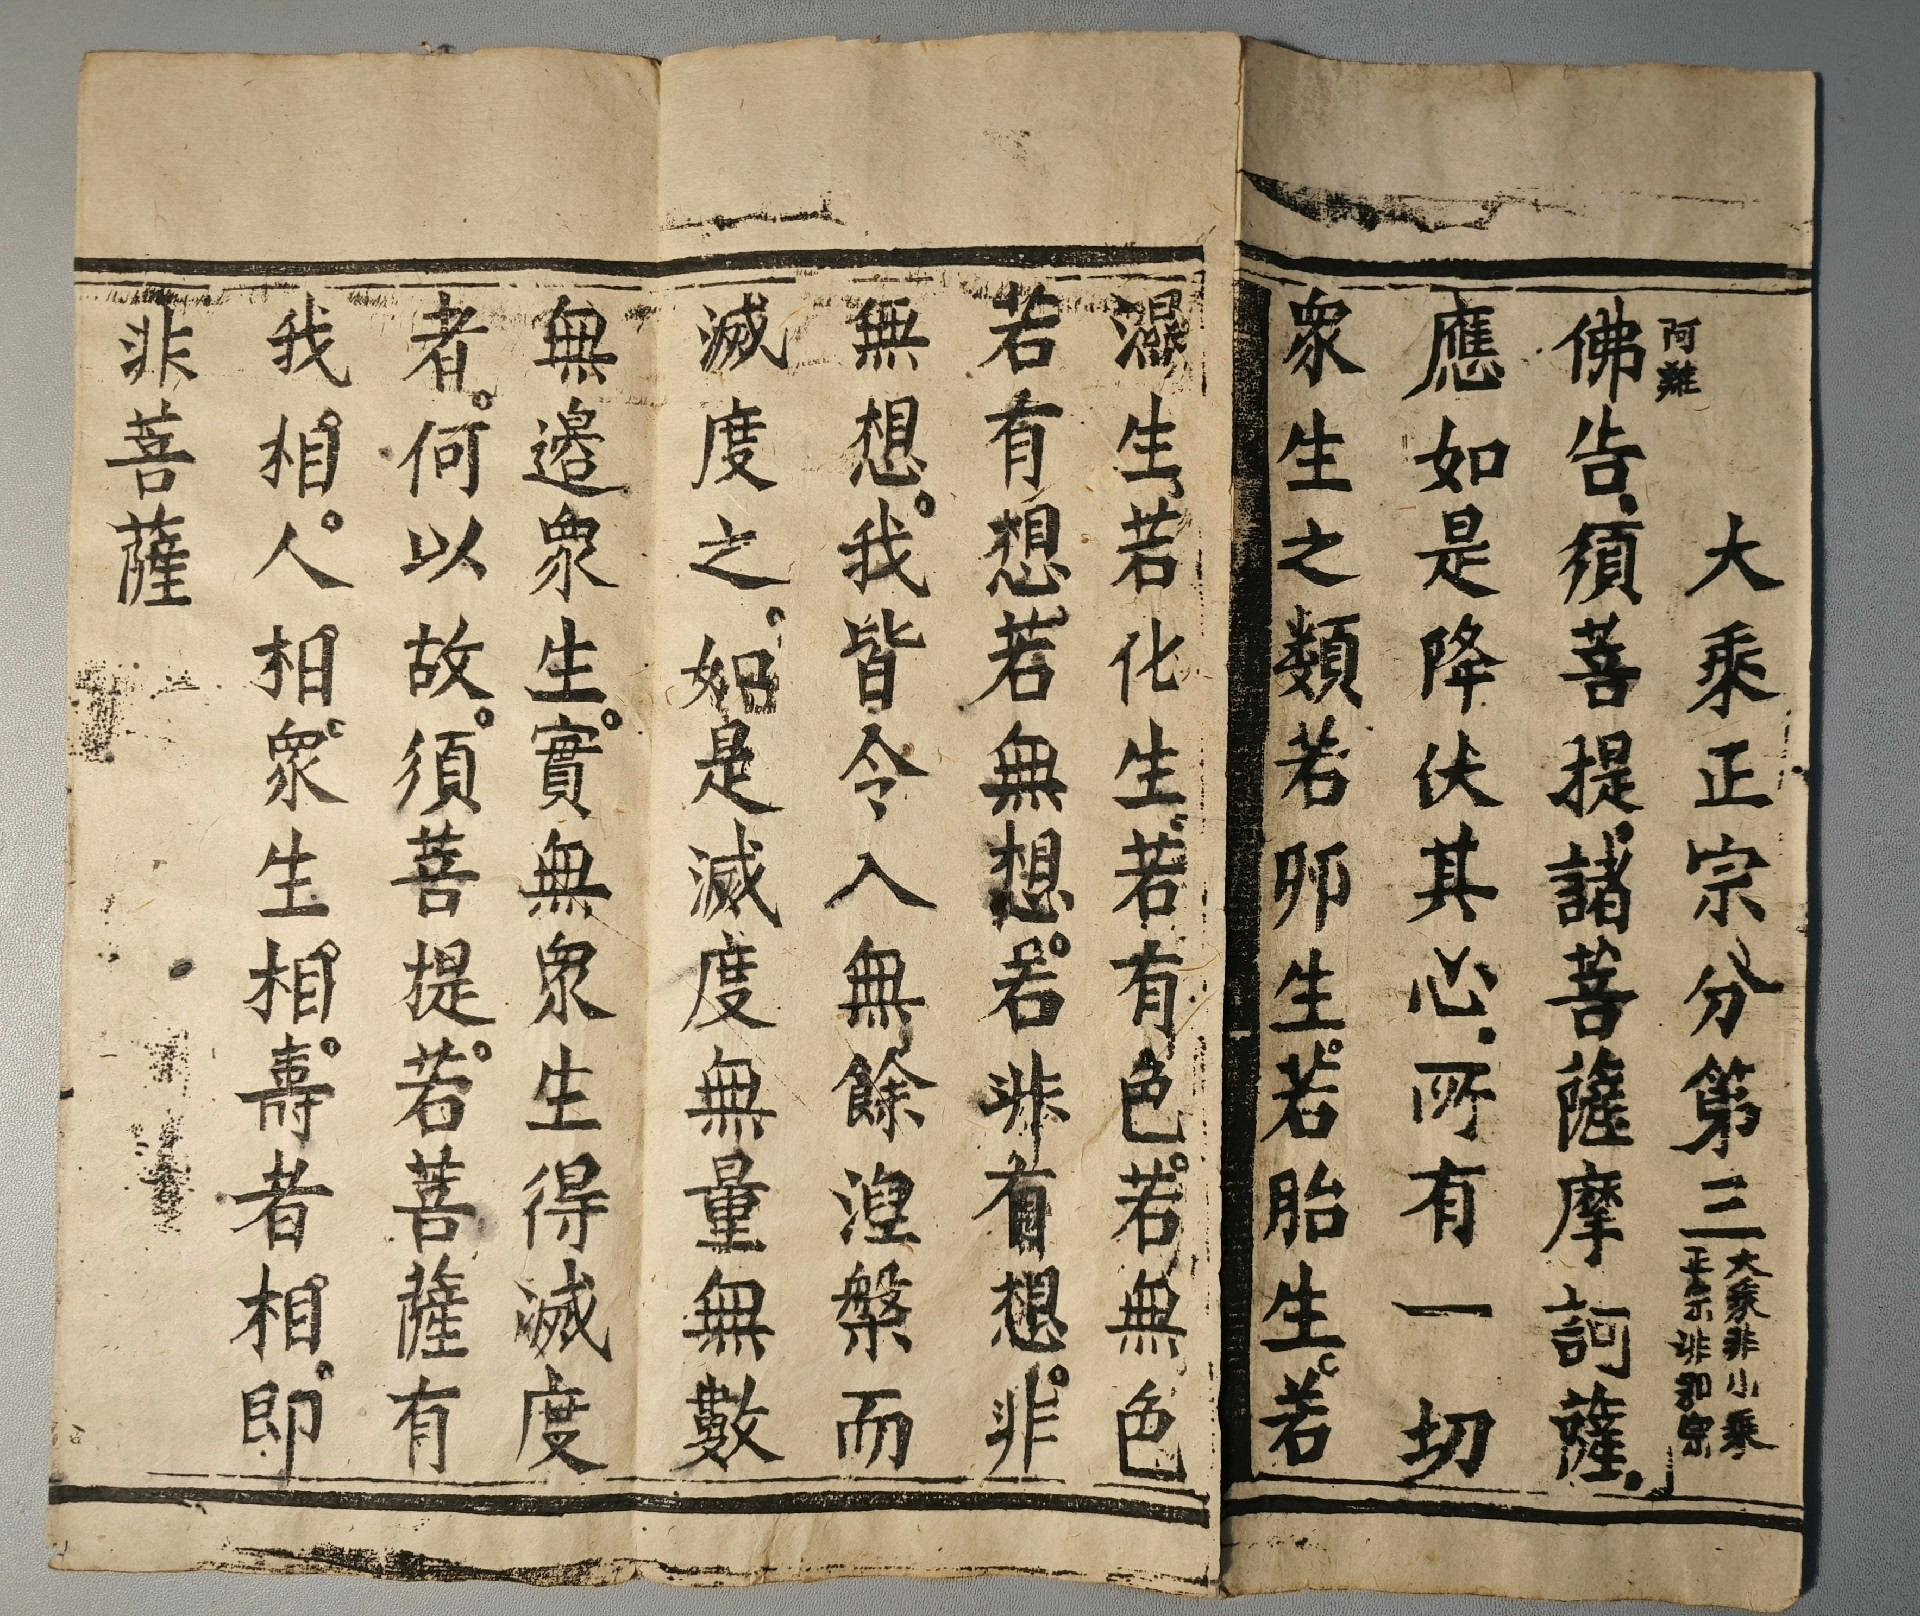 大乘正宗分第三
大乘非小乘
正宗非邪宗
阿難
佛告。須菩提。諸菩薩摩訶薩。
應如是降伏其心。所有一切
衆生之類若卵生。若胎生。若
濕生。若化生。若有色。若無色
若有想。若無想。若非有想。非
無想。我皆令入無餘涅槃而
滅度之。如是滅度無量無數
無邊衆生。實無衆生得滅度
者。何以故。須菩提。若菩薩有
我相。人相。衆生相。壽者相。即
非菩薩